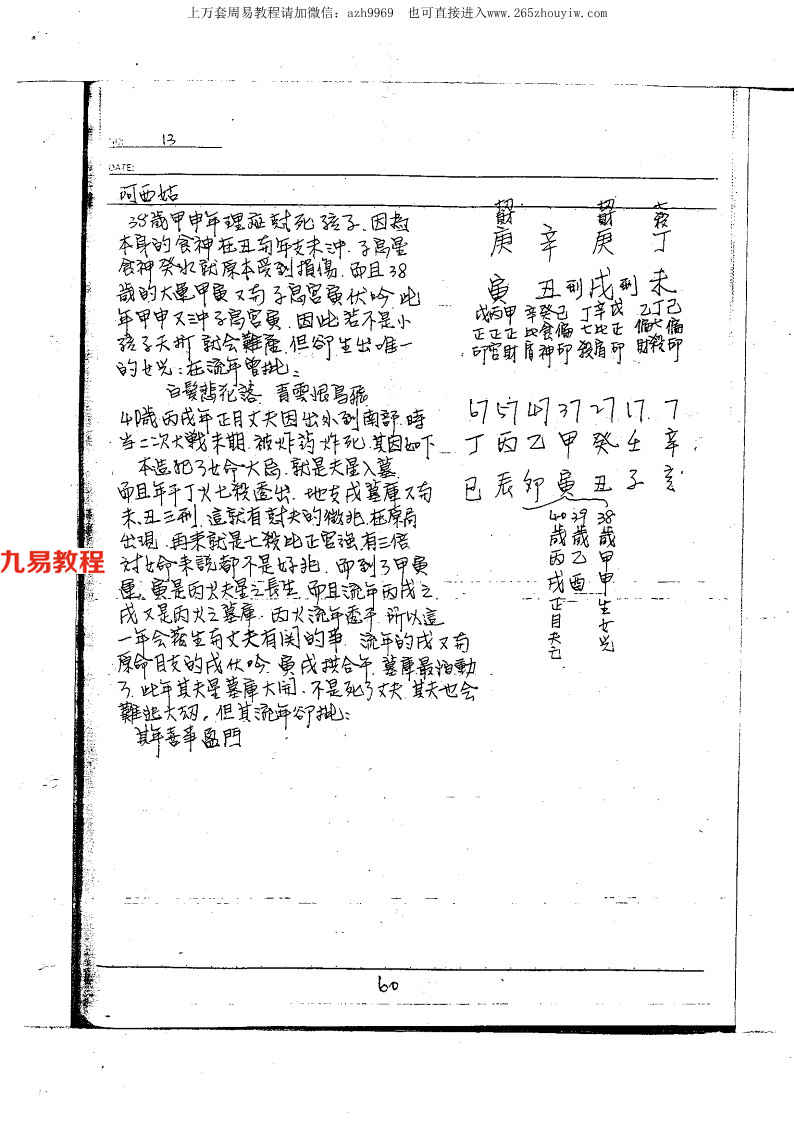 上万套周易教程请加微信：azh9969　也可直接进入www.265zhouyiw.com
NO: 13
DATE:
阿西姑
38歲甲申年理應尅死孩子.因為
本身的食神在丑與年支未沖.子息星
食神癸水就原本受到損傷.而且38
歲的大運甲寅又與子息宮寅伏吟.此
年甲申又沖子息宮寅.因此若不是小
孩子夭折就會難產.但卻生出唯一
的女兒:在流年曾批:
白髮悲花落 青雲恨鳥飛
40歲丙戌年正月丈夫因出外到南部.時
當二次大戰末期.被炸葯炸死.其因如下
本造犯了女命一大忌.就是夫星入墓.
而且年干丁火七殺透出.地支戌墓庫又與
未.丑三刑.這就有尅夫的徵兆.在原局
出現.再來就是七殺比正官強.有三倍
對女命來說都不是好兆.而到了甲寅
運.寅是丙火夫星之長生.而且流年丙戌之
戌又是丙火之墓庫.丙火流年透干.所以這
一年會發生與丈夫有関的事.流年的戌又與
原命月支的戌伏吟.寅戌拱合午.墓庫最怕動
了.此年其夫星墓庫大開.不是死了丈夫.其夫也會
難逃大劫.但其流年卻批:
其年喜事盈門
庚 辛 庚 丁
寅 丑 刑 戌 刑 未
戊丙甲 辛癸己 丁辛戊 乙丁己
正正正 比食偏 七比正 偏七偏
印官財 肩神印 殺肩印 財殺印
67 57 47 37 27 17 7
丁 丙 乙 甲 癸 壬 辛
巳 辰 卯 寅 丑 子 亥
38歲甲申生女兒
39歲乙酉
40歲丙戌正月夫亡
九易教程
60